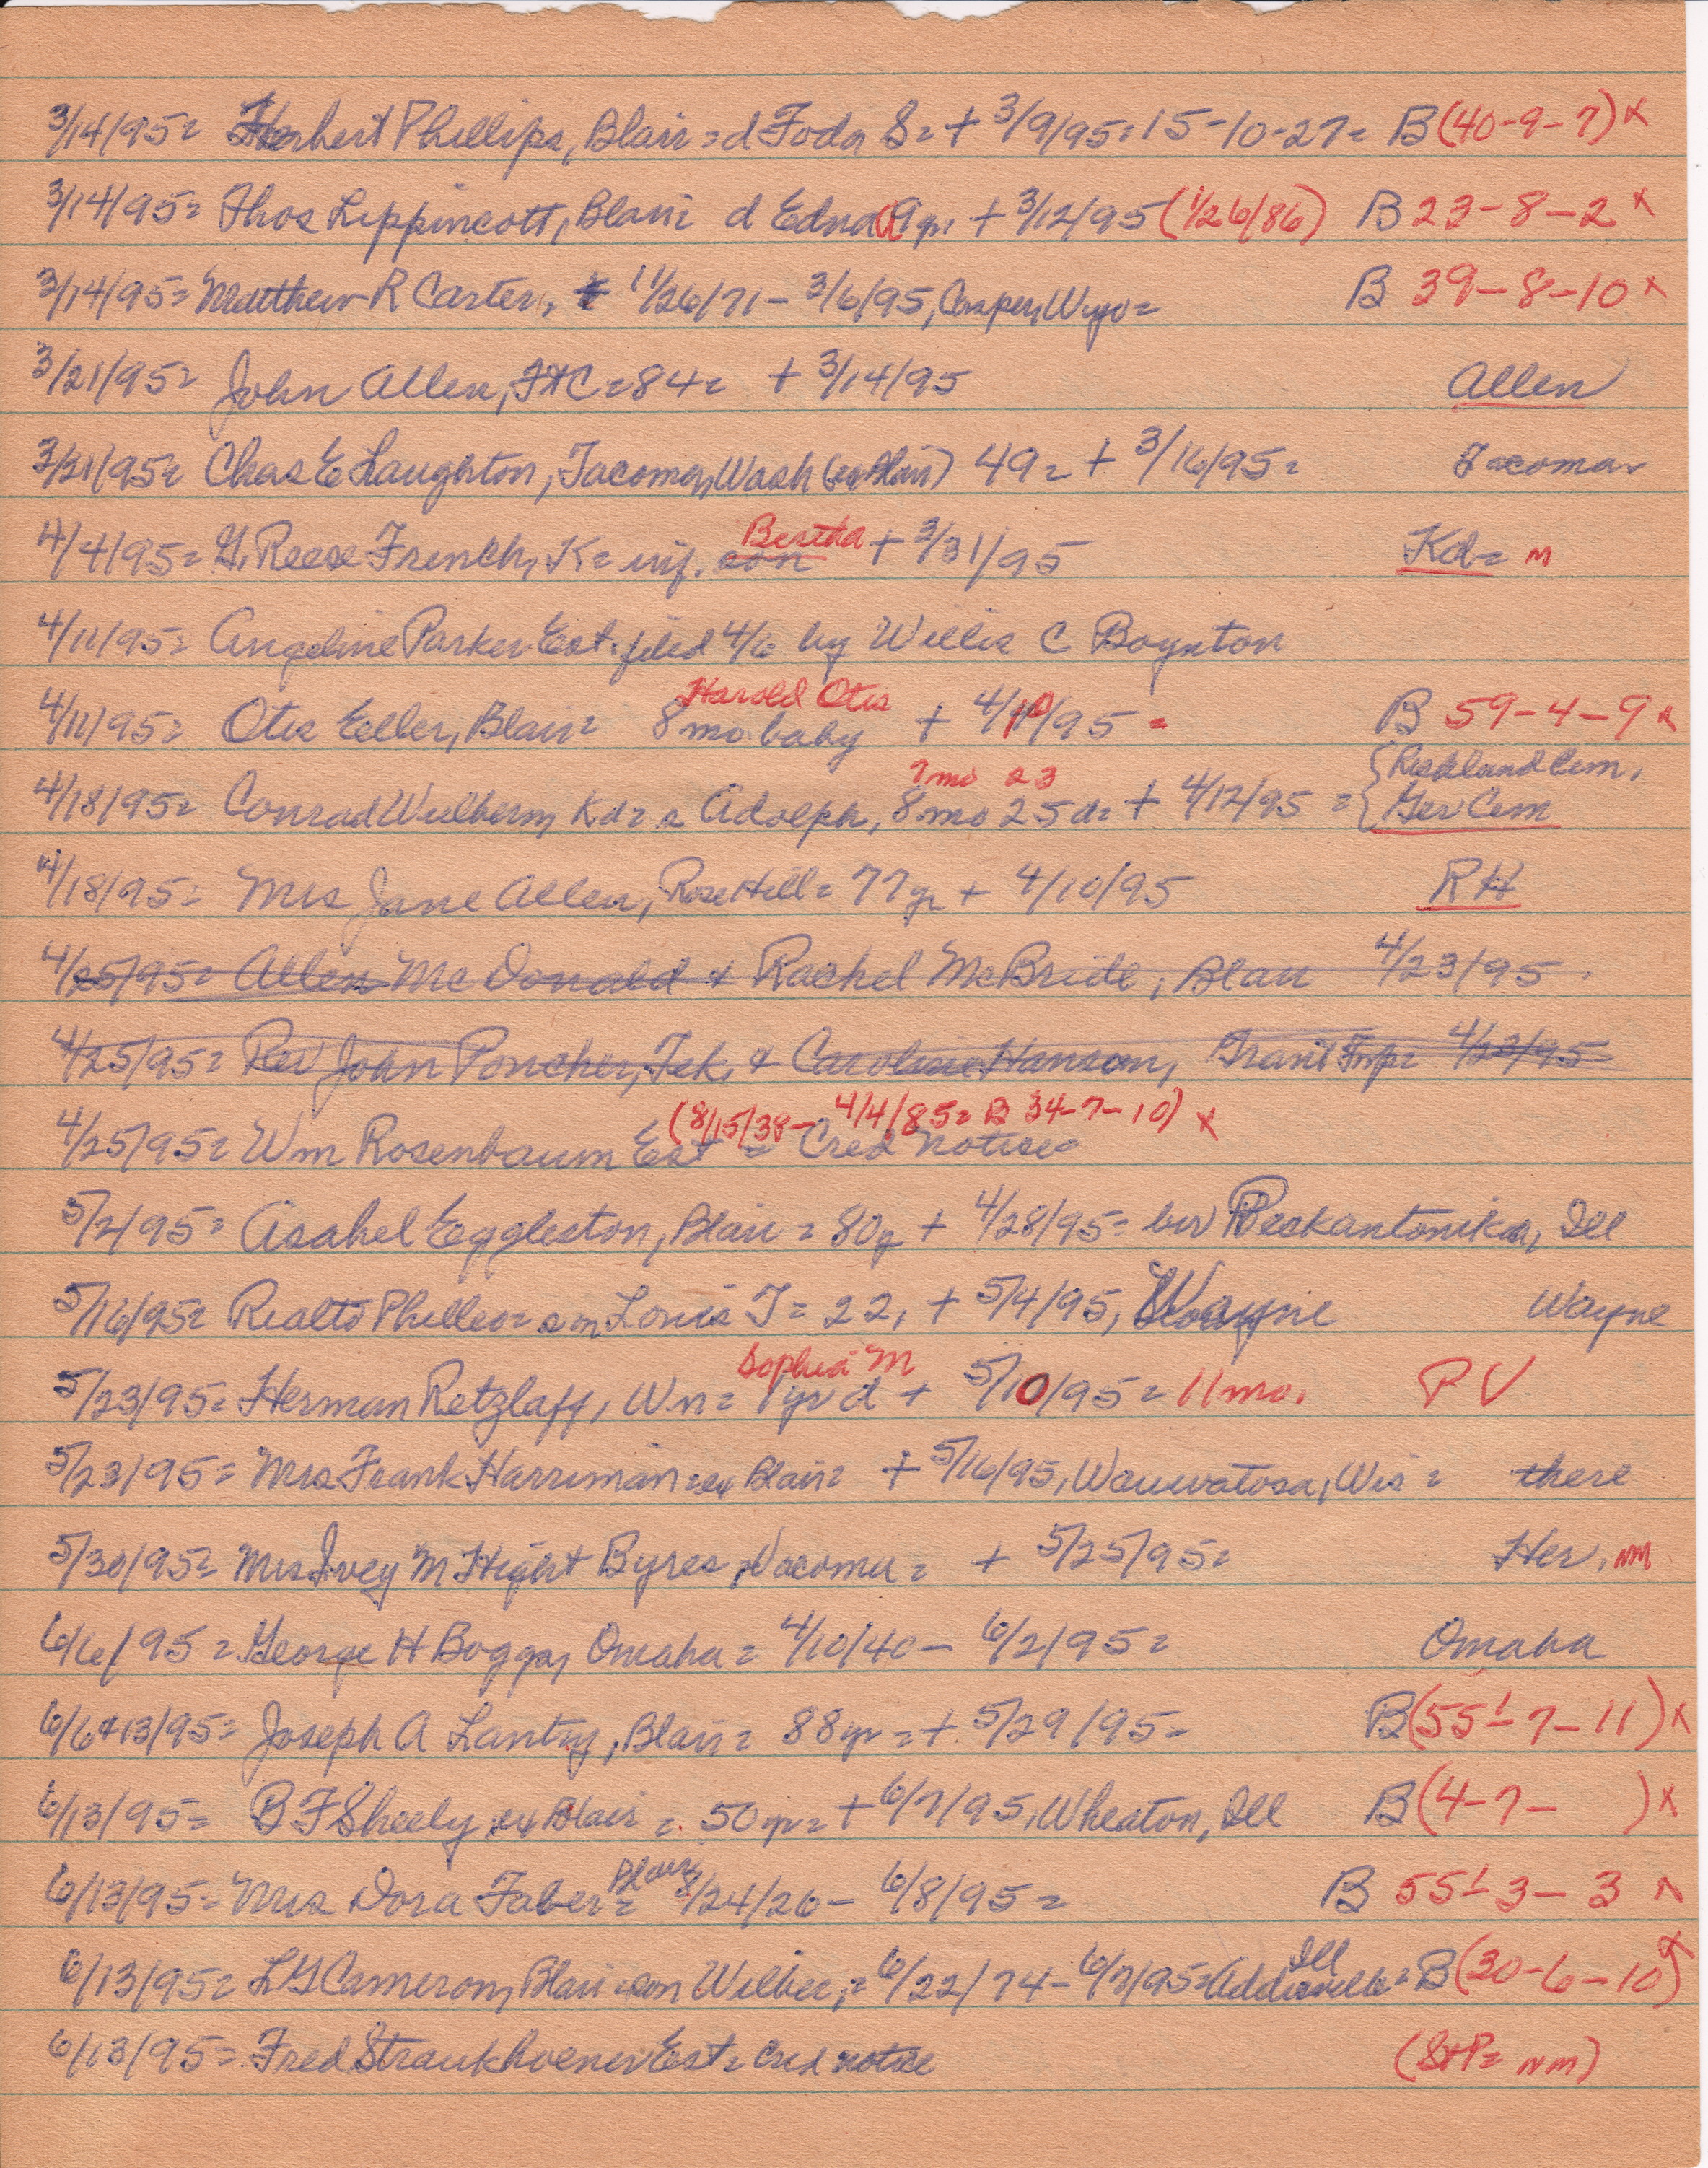 3/14/95= Herbert Phillips, Blair = d Foda S = + 3/9/95 = 15-10-27 = B (40-9-7) x
3/14/95= Thos Lippincott, Blair d Edna (9 yr. + 3/12/95 (1/26/86) B 23-8-2 x
3/14/95= Matthew R Carter, 11/26/71 - 3/6/95, Casper, Wyo = B 39-8-10 x
3/21/95= John Allen, FtC = 84 = + 3/14/95 Allen
3/21/95= Chas E Laughton, Tacoma, Wash (ex Blair) 49 = + 3/16/95 = Tacoma
4/4/95= G. Reese French, K = inf. son Bertha + 3/31/95 Kd = m
4/11/95= Angeline Parker Est. filed 4/6 by Willis C Boynton
4/11/95= Otis Eeller, Blair = 8 mo. baby Harold Otis + 4/10/95 = B 59-4-9 x
7 mo 23 {Richland Cem.
4/18/95= Conrad Wulherm, Kd = s Adolph, 8 mo 25 d = + 4/12/95 = {Ger Cem
4/18/95= Mrs Jane Allen, Rose Hill = 77 yr + 4/10/95 RH
4/25/95= Allen McDonald & Rachel McBride, Blair 4/23/95
4/25/95= Rev John Poncher, Tek, & Caroline Hanson, Grant Twp = 4/23/95
(8/15/38 - 4/4/85 = B 34-7-10) x
4/25/95= Wm Rosenbaum Est = Cred notice
5/2/95= Asahel Eggleston, Blair = 80 y + 4/28/95 = bur Peckantonika, Ill
5/16/95= Rialto Philleo = son Louis T = 22, + 5/4/95, Wayne Wayne
Sophia M
5/23/95= Herman Retzlaff, Wn = 1 yr d + 5/10/95 = 11 mo. PV
5/23/95= Mrs Frank Harriman = ex Blair = + 5/16/95, Wauwatosa, Wis = there
5/30/95= Mrs Ivey M Hight Byres, Nacoma = + 5/25/95 = Her. nm
6/6/95= George H Boggs, Omaha = 4/10/40 - 6/2/95 = Omaha
6/6 & 13/95= Joseph A Lantry, Blair = 88 yr = + 5/29/95 = B (55½-7-11) x
6/13/95= B F Sheely, ex Blair = 50 yr = + 6/7/95, Wheaton, Ill B (4-7- ) x
6/13/95= Mrs Dora Faber = Blair 8/24/26 - 6/8/95 = B 55½-3-3 x
6/13/95= L G Cameron, Blair = son Wilber, = 6/22/74 - 6/7/95 = Addieville Ill = B (30-6-10) x
6/13/95= Fred Straukhoener Est = Cred notice (StP = nm)